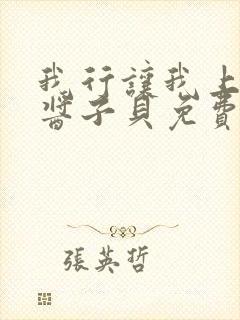 我行讓我上
醬子貝免費
張英哲